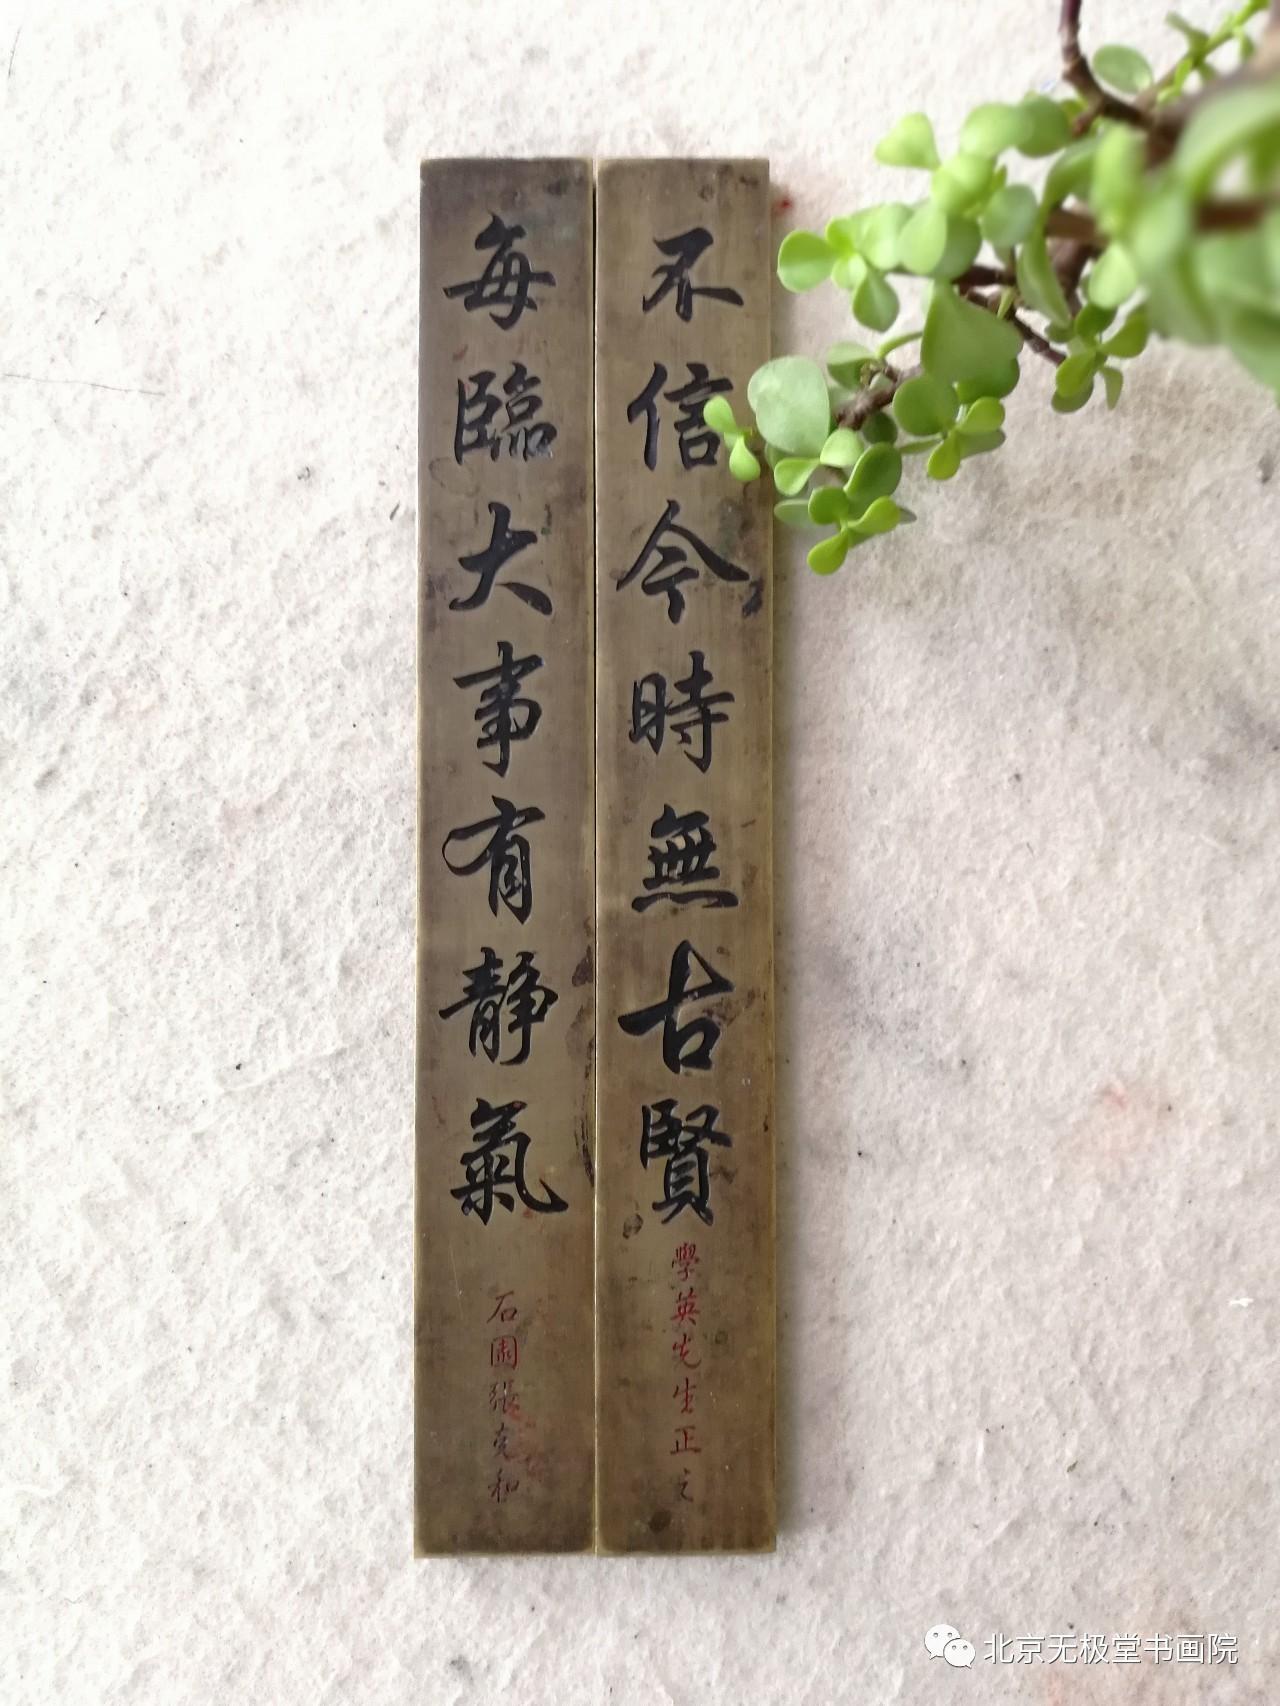 不信今時無古賢
學英先生正之
每臨大事有靜氣
石園張克和
北京无极堂书画院